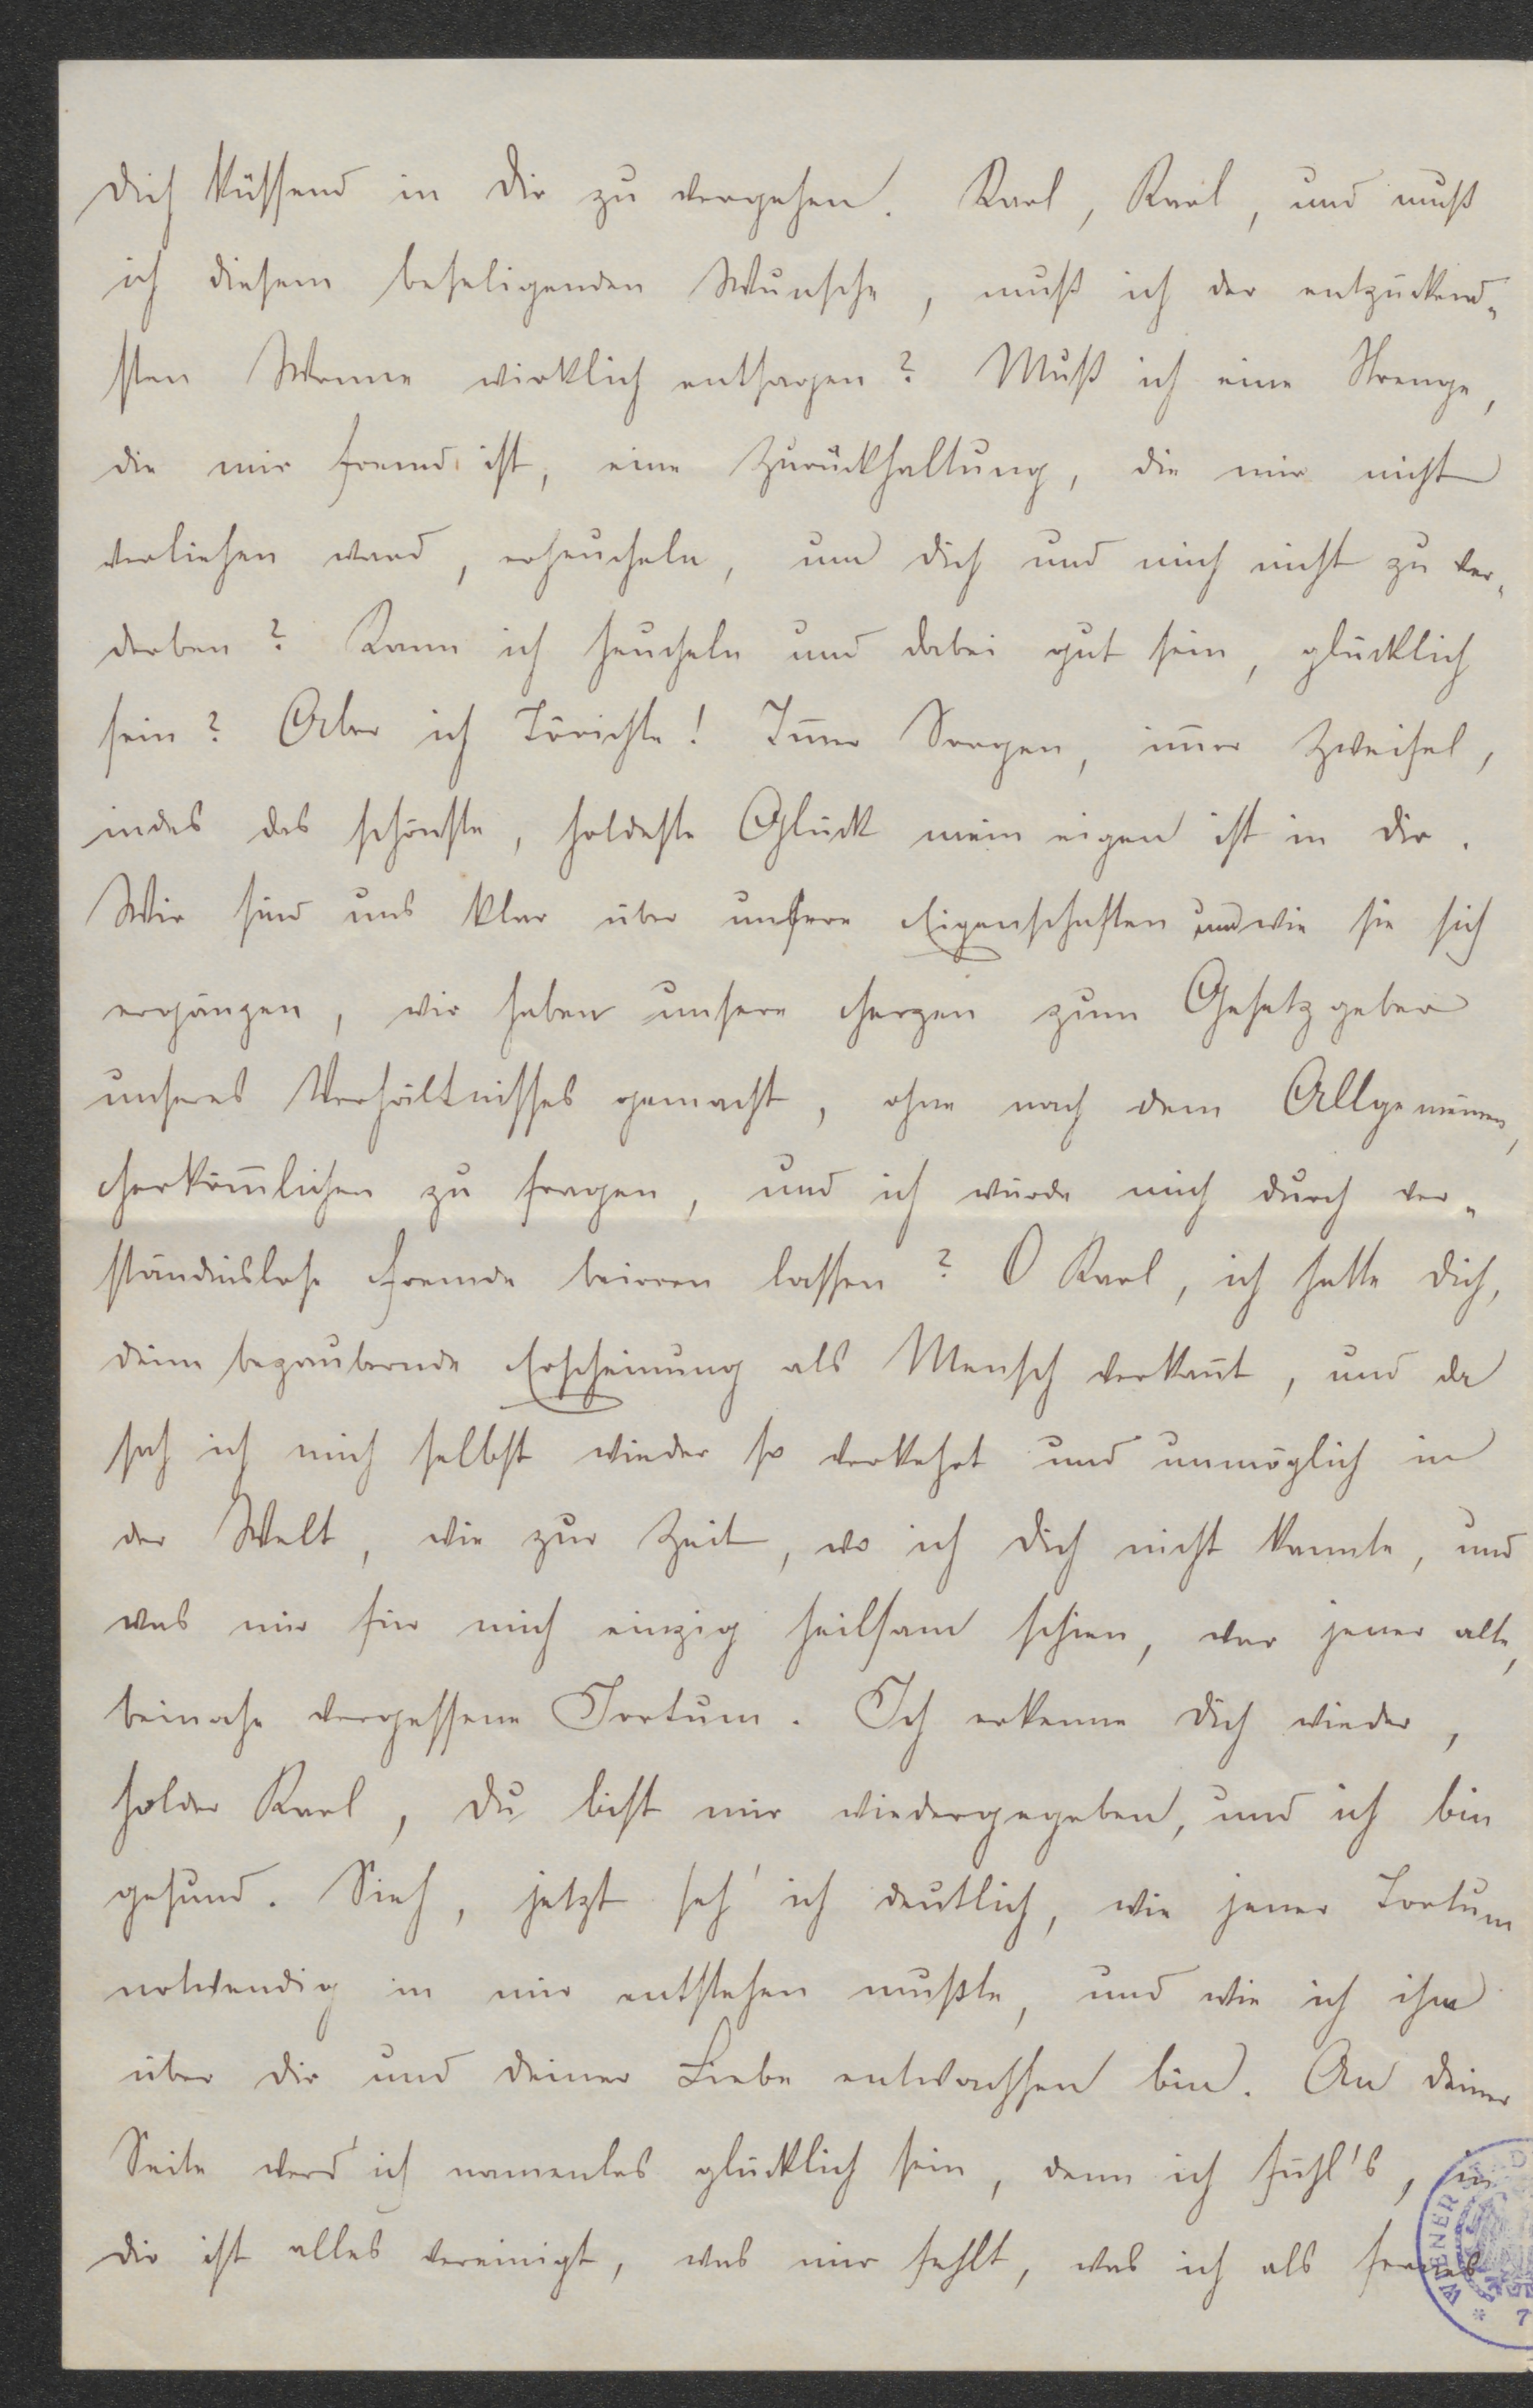 Dich küssend in Dir zu vergehen. Karl, Karl, und muß
ich diesem beseligenden Wunsche, muß ich der entzückend-
sten Wonne wirklich entsagen? Muß ich eine Strenge,
die mir fremd ist, eine Zurückhaltung, die mir nicht
verliehen ward, erheucheln, um Dich und mich nicht zu ver-
derben? Kann ich heucheln und dabei gut sein, glücklich
sein? Aber ich Törichte! Im̄er Sorgen, im̄er Zweifel,
indes das schönste, holdeste Glück mein eigen ist in Dir.
Wir sind uns klar über unsere Eigenschaften und wie sie sich
ergänzen, wir haben unsere Herzen zum Gesetzgeber
unseres Verhältnisses gemacht, ohne nach dem Allgemeinen,
Herköm̄lichen zu fragen, und ich würde mich durch ver-
ständnislose Fremde beirren lassen? O Karl, ich hatte Dich,
Deine bezaubernde Erscheinung als Mensch verkan̄t, und da
sah ich mich selbst wieder so verkehrt und unmöglich in
der Welt, wie zur Zeit, wo ich Dich nicht kannte, und
was mir für mich einzig heilsam schien, war jener alte,
beinahe vergessene Irrtum. Ich erkenne Dich wieder,
holder Karl, Du bist mir wiedergegeben, und ich bin
gesund. Sieh, jetzt seh' ich deutlich, wie jener Irrtum
notwendig in mir entstehen mußte, und wie ich ihm
über Dir und Deiner Liebe entwachsen bin. An Deiner
Seite werd' ich namenlos glücklich sein, denn ich fühl's, in
Dir ist alles vereinigt, was mir fehlt, was ich als fernes
WIENER
7